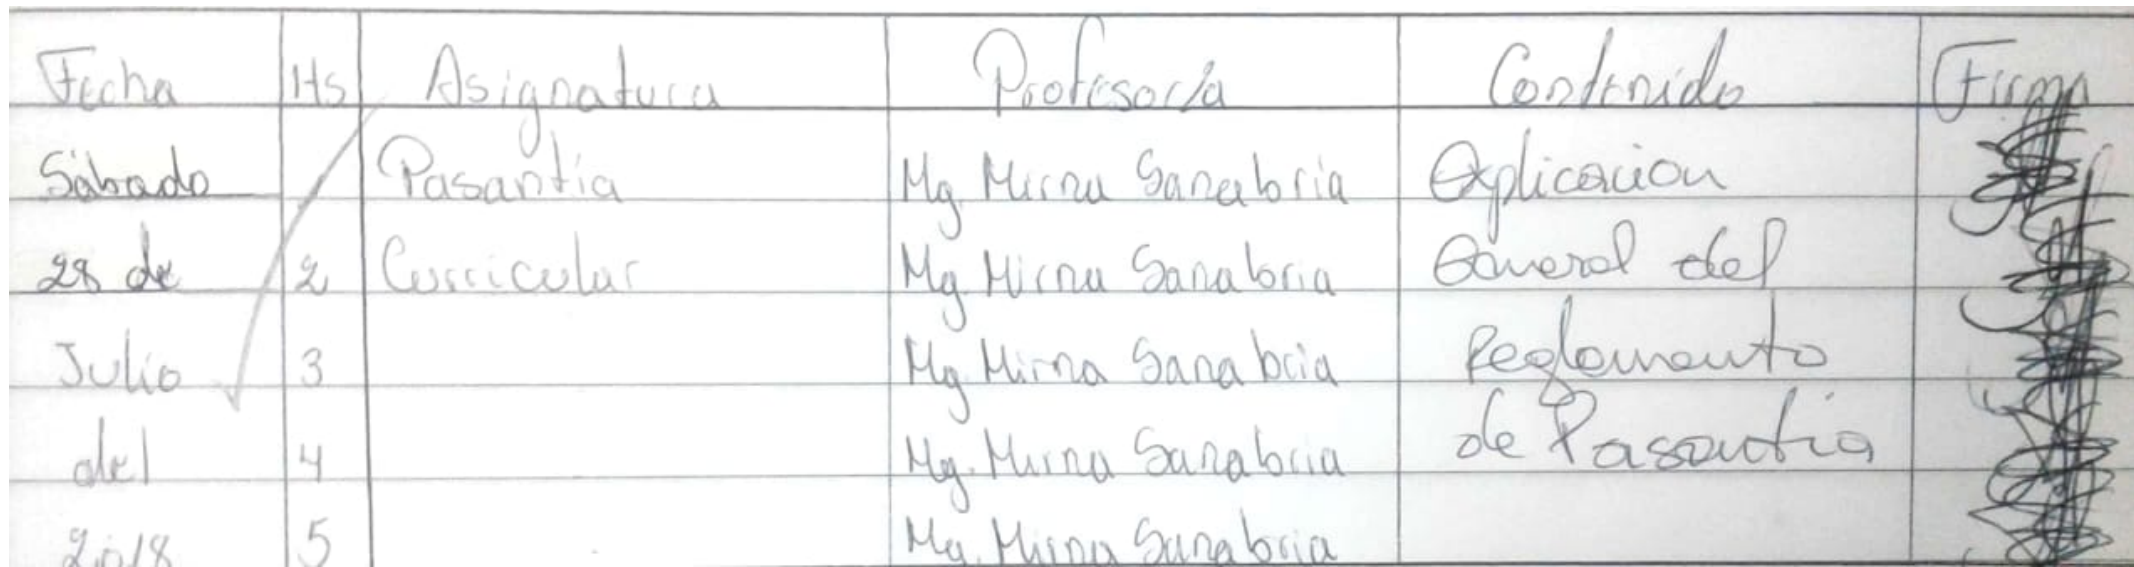 Fecha Hs Asignatura Profesor/a Contenido Firma
Sábado Pasantía Mg. Mirna Sanabria Explicacion
28 de 2 Curricular Mg. Mirna Sanabria General del
Julio 3 Mg. Mirna Sanabria Reglamento
del 4 Mg. Mirna Sanabria de Pasantía
2018 5 Mg. Mirna Sanabria